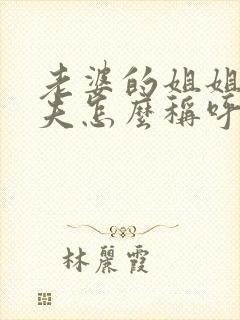 老婆的姐姐
夫怎麼稱呼
林麗霞